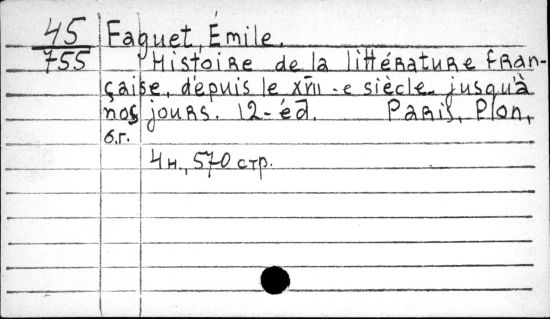 45 Faguet, Émile.
755 Histoire de la littérature fran-
çaise, depuis le XVII-e siècle jusqu'à
nos jours. 12-éd. Paris, Plon,
б.г.
4н., 570 стр.